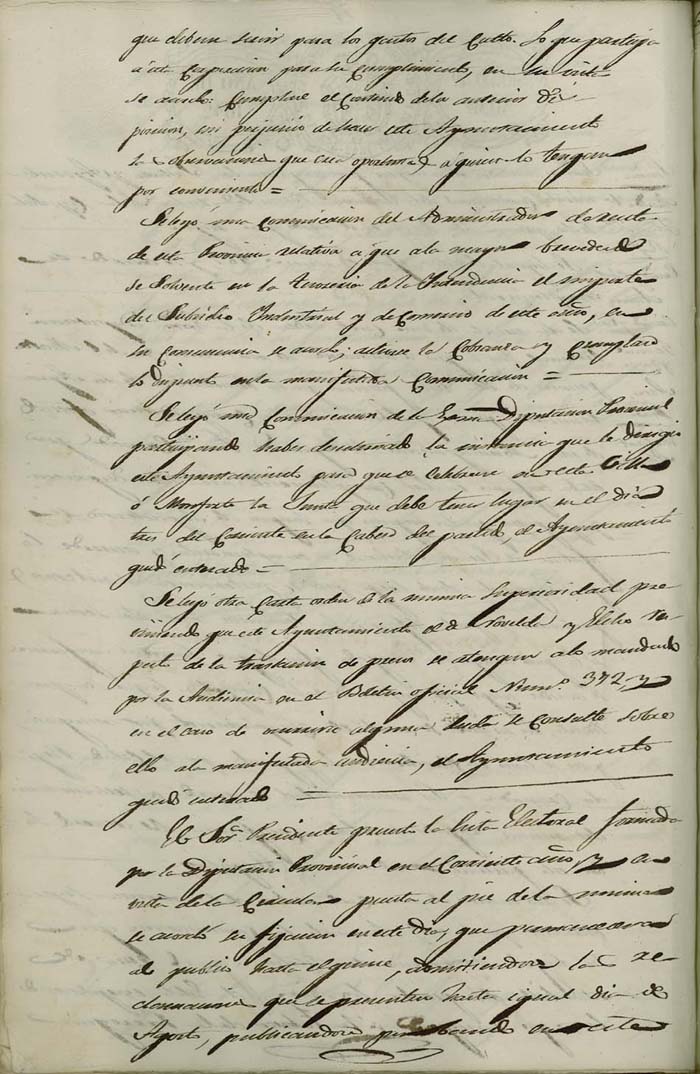 que deben servir para los gastos del Culto. Lo que participa
á esta Corporacion para su Cumplimiento, en su vista
se acordo: Cumplase el Contenido de la anterior dis
posicion, sin perjuicio de hacer este Ayuntamiento
las observaciones que crea oportunas, á quienes lo tengan
por conveniente =
Se leyó una Comunicacion del Administrador de rentas
de esta Provincia relativa á que á la mayor brevedad
se Solvente en la tesoreria de la Intendencia el importe
del Subsidio Industrial y de Comercio de este año, en
su Consecuencia se acordo; activese la Cobranza y Cumplase
lo dispuesto en la manifestada Comunicacion =
Se leyó una Comunicacion de la Exma. Diputacion Provincial
participando haber desestimado la instancia que le dirigio
este Ayuntamiento para que se celebrase en esta Villa
ó Monforte la Junta que debe tener lugar en el dia
tres del Corriente en la Cabeza del partido, el Ayuntamiento
quedó enterado =
Se leyó otra Carta orden de la misma Superioridad pre
viniendo que este Ayuntamiento el de Novelda y Elche res
pecto de la traslacion de presos se atengan á lo mandado
por la Audiencia en el Boletin oficial Num.º 372, y
en el caso de ocurrir alguna duda se Consulte sobre
ello á la manifestada audiencia, el Ayuntamiento
quedó enterado =
El Sor. Presidente presentó la lista Electoral formada
por la Diputacion Provincial en el Corriente año, y a
vista de la Circular puesta al pie de la misma
se acordó su fijacion en este dia, que permanecera
al publico hasta el quince, admitiendose las re
clamaciones que se presenten hasta igual dia de
Agosto, publicandose por bando en este